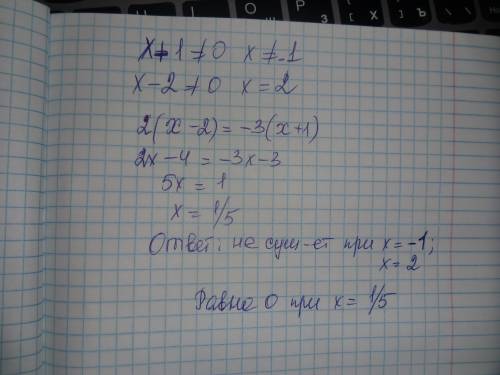 x+1≠0 x≠-1
x-2≠0 x=2
2(x-2)=-3(x+1)
2x-4=-3x-3
5x=1
x=1/5
Ответ: не сущ-ет при x=-1;
x=2
Равно 0 при x=1/5